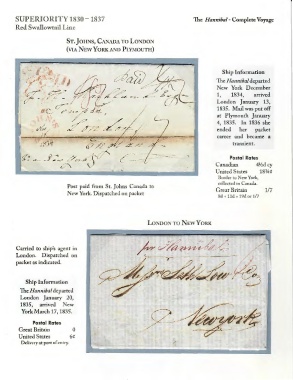 SUPERIORITY 1830 – 1837
Red Swallowtail Line
The Hannibal - Complete Voyage
ST. JOHNS, CANADA TO LONDON
(VIA NEW YORK AND PLYMOUTH)
Paid
London
Ship Information
The Hannibal departed
New York December
1, 1834, arrived
London January 13,
1835. Mail was put off
at Plymouth January
4, 1835. In 1836 she
ended her packet
career and became a
transient.
Postal Rates
Canadian 4½d cy
United States 18¾¢
Border to New York,
collected in Canada.
Great Britain 1/7
Post paid from St. Johns Canada to
New York. Dispatched on packet
LONDON TO NEW YORK
Carried to ship's agent in
London. Dispatched on
packet as indicated.
Ship Information
The Hannibal departed
London January 20,
1835, arrived New
York March 17, 1835.
Postal Rates
Great Britain 0
United States 6¢
Delivery at port of entry.
per Hannibal
New York